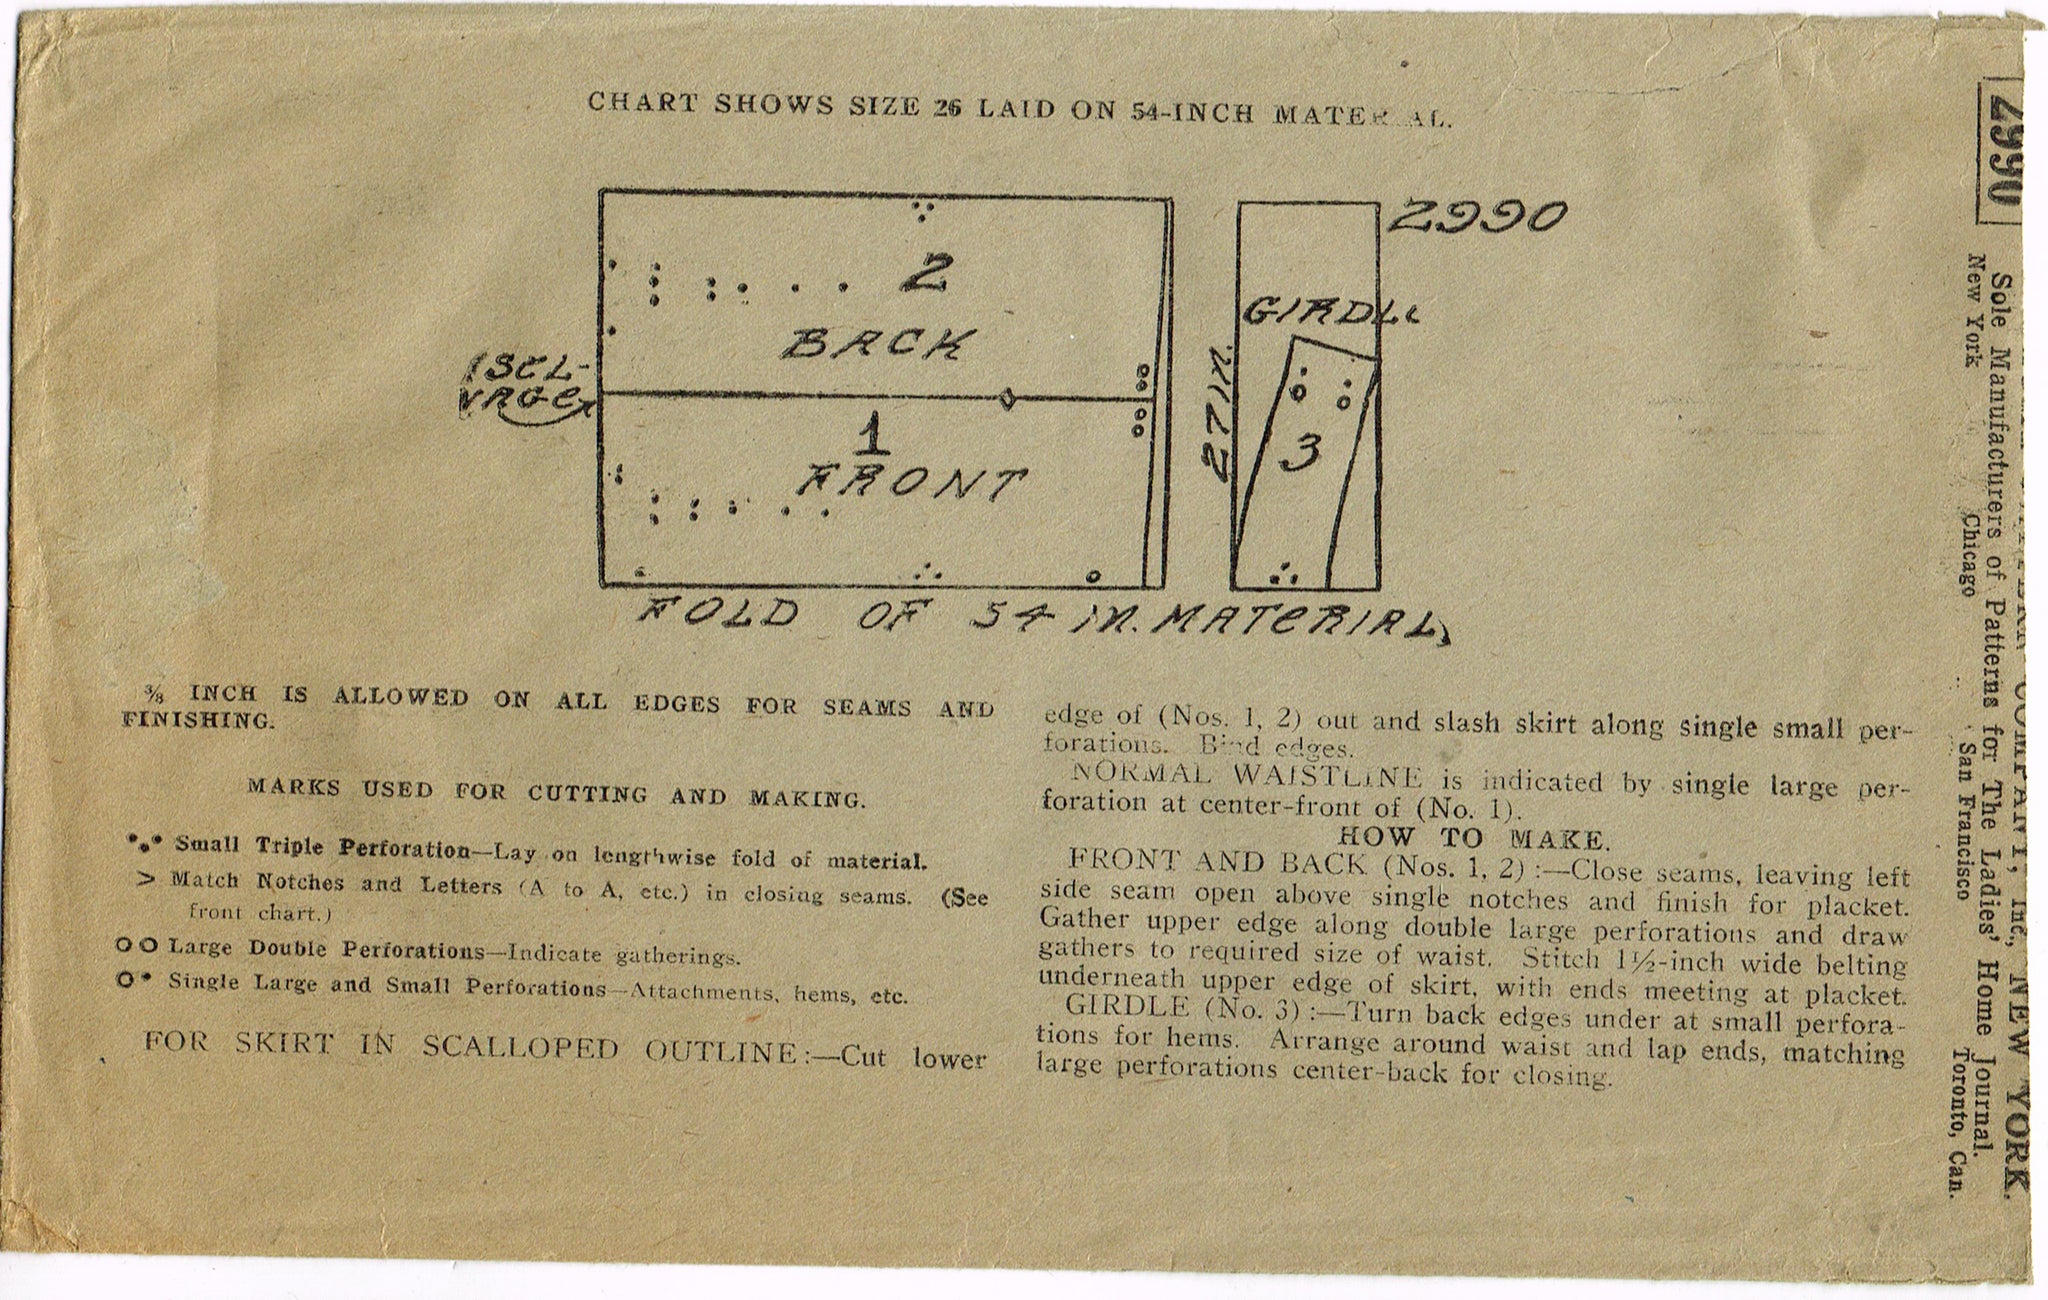 CHART SHOWS SIZE 26 LAID ON 54-INCH MATERIAL.
2990
2
BACK
GIRDLE
1SEL-
VAGE
27 IN.
1
FRONT
3
FOLD OF 54 IN. MATERIAL
⅜ INCH IS ALLOWED ON ALL EDGES FOR SEAMS AND
FINISHING.
MARKS USED FOR CUTTING AND MAKING.
Small Triple Perforation—Lay on lengthwise fold of material.
> Match Notches and Letters (A to A, etc.) in closing seams. (See
front chart.)
Large Double Perforations—Indicate gatherings.
Single Large and Small Perforations—Attachments, hems, etc.
FOR SKIRT IN SCALLOPED OUTLINE:—Cut lower
edge of (Nos. 1, 2) out and slash skirt along single small per-
forations. Bind edges.
NORMAL WAISTLINE is indicated by single large per-
foration at center-front of (No. 1).
HOW TO MAKE.
FRONT AND BACK (Nos. 1, 2):—Close seams, leaving left
side seam open above single notches and finish for placket.
Gather upper edge along double large perforations and draw
gathers to required size of waist. Stitch 1½-inch wide belting
underneath upper edge of skirt, with ends meeting at placket.
GIRDLE (No. 3):—Turn back edges under at small perfora-
tions for hems. Arrange around waist and lap ends, matching
large perforations center-back for closing.
2990
COMPANY, Inc., NEW YORK.
Sole Manufacturers of Patterns for The Ladies' Home Journal.
New York Chicago San Francisco Toronto, Can.